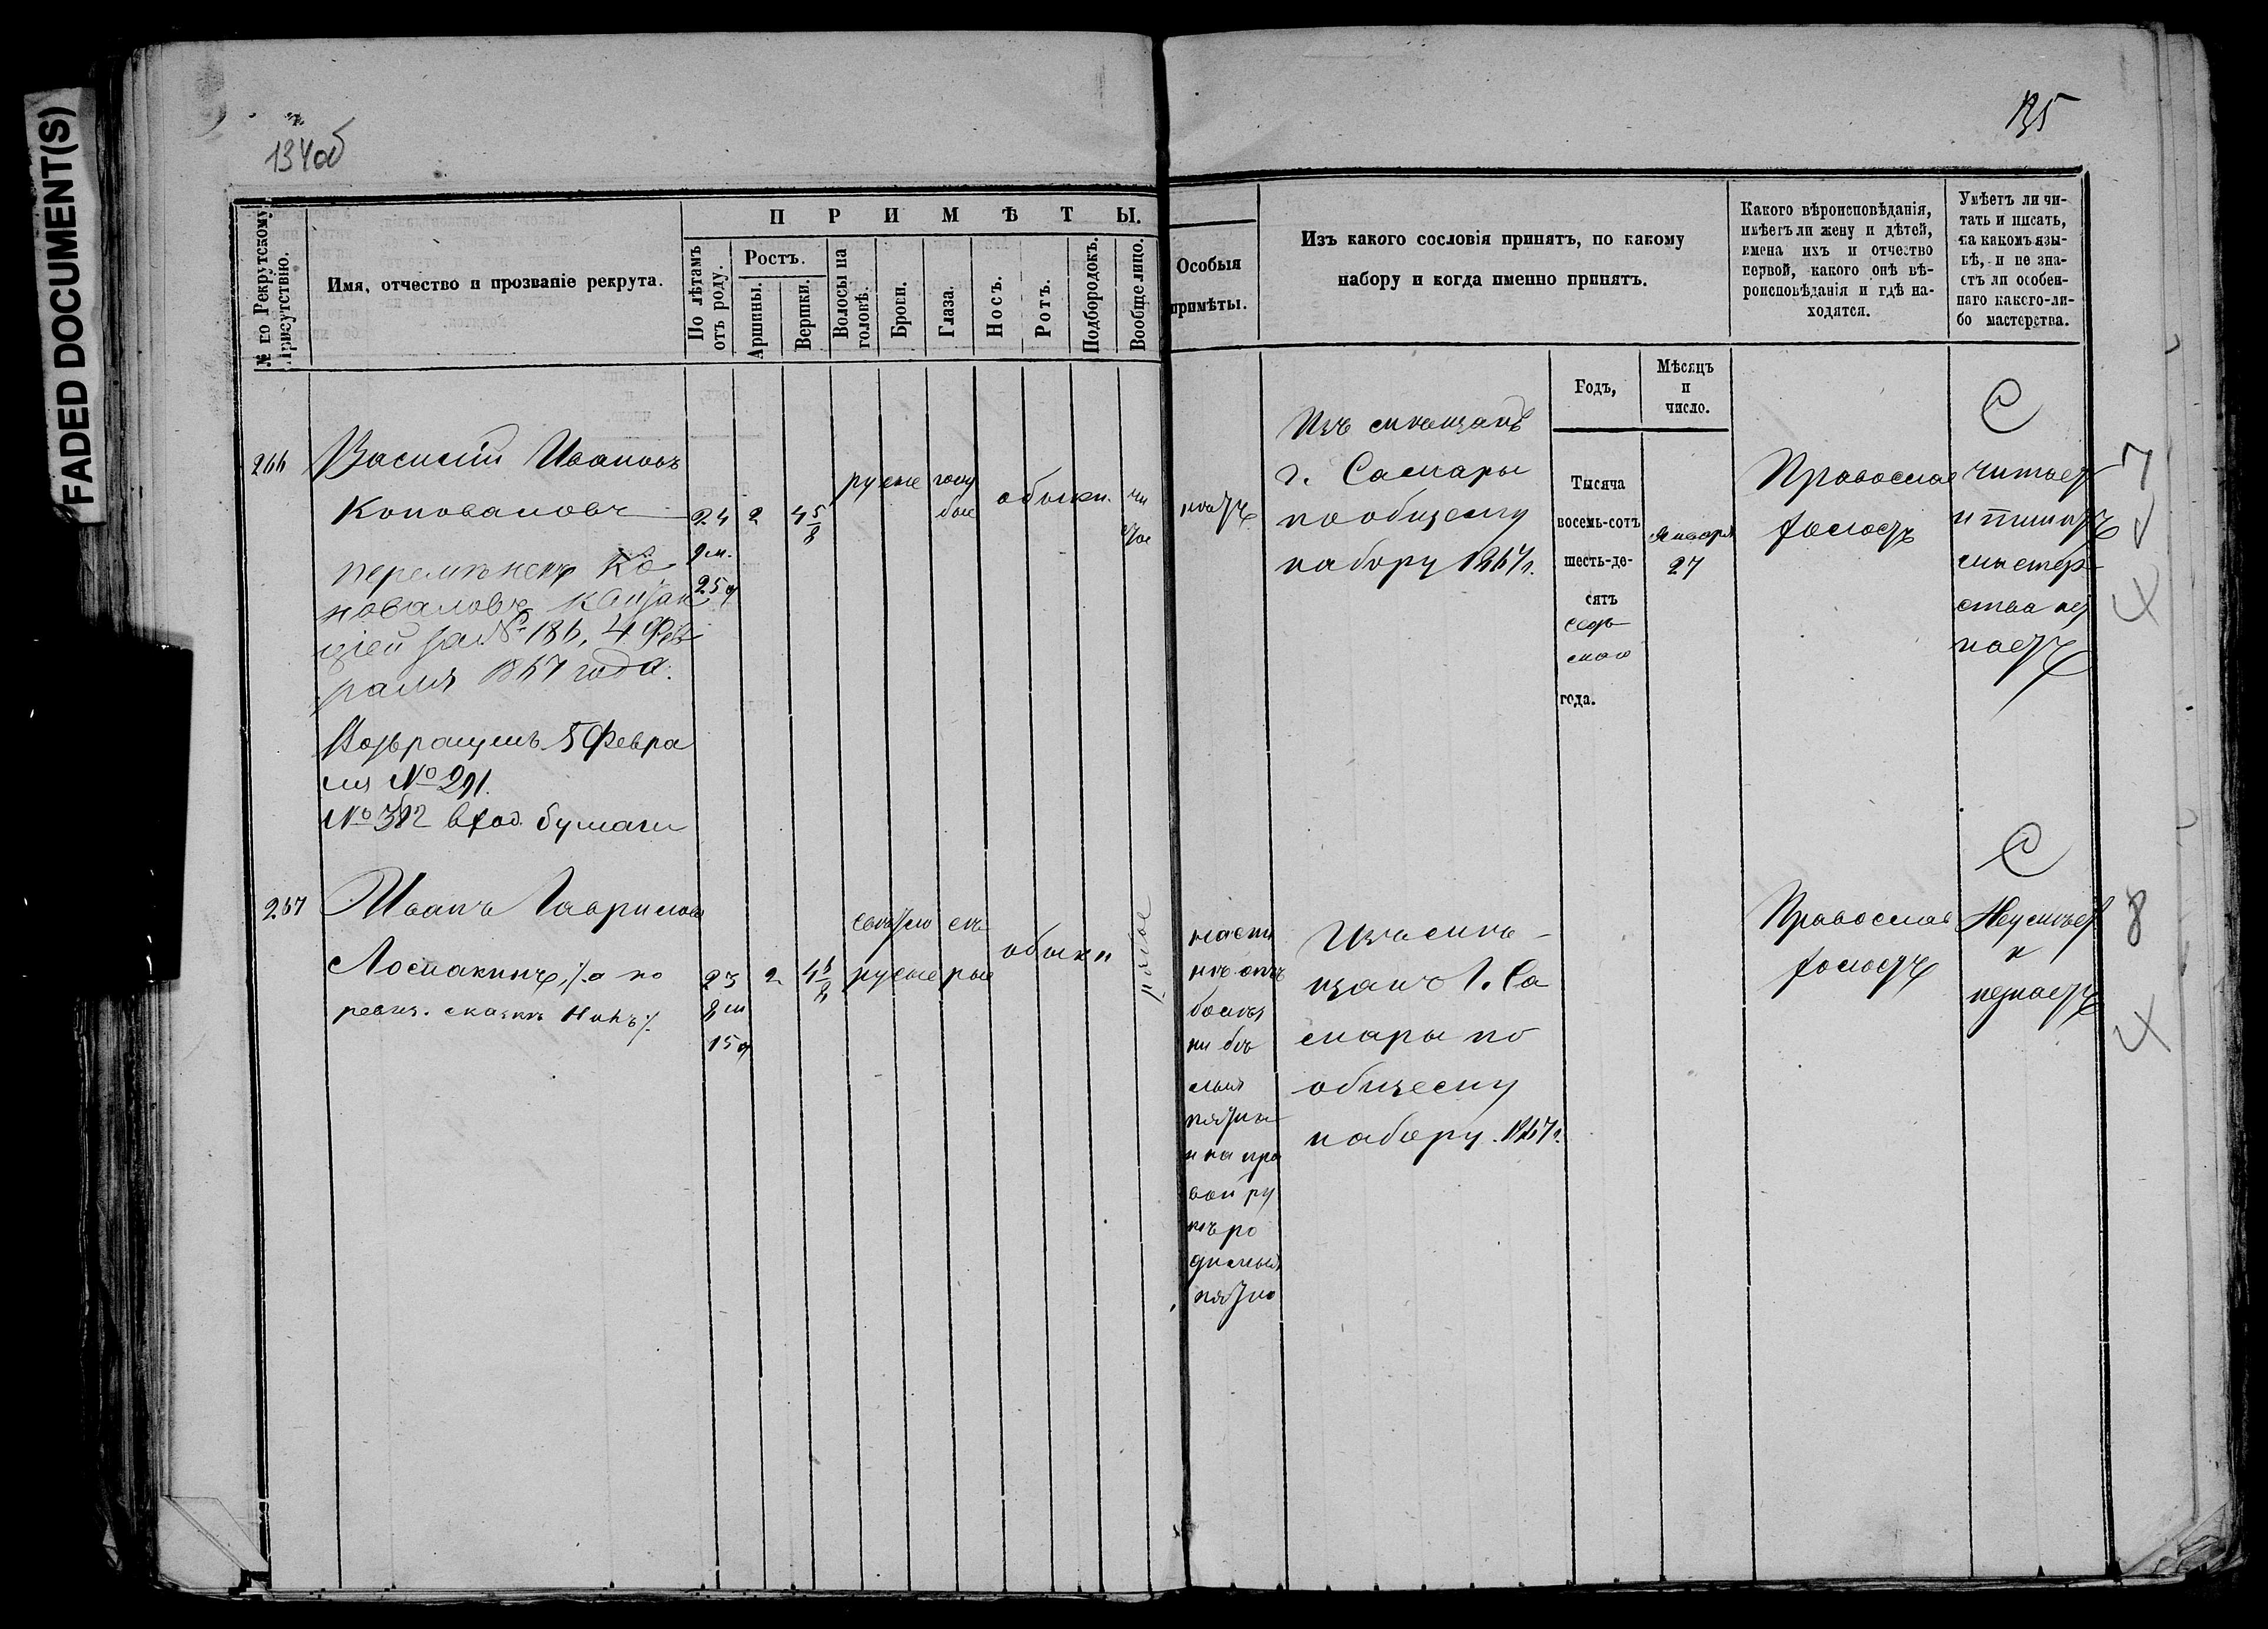 FADED DOCUMENT(S)
134об
135
№ по Рекрутскому Присутствію.
Имя, отчество и прозваніе рекрута.
ПРИМѢТЫ.
По лѣтамъ отъ роду.
Ростъ.
Аршины.
Вершки.
Волосы на головѣ.
Брови.
Глаза.
Носъ.
Ротъ.
Подбородокъ.
Вообще лицо.
Особыя
примѣты.
Изъ какого сословія принятъ, по какому
набору и когда именно принятъ.
Годъ,
Мѣсяцъ
и
число.
Какого вѣроисповѣданія,
имѣетъ ли жену и дѣтей,
имена ихъ и отчество
первой, какого онѣ вѣ-
роисповѣданія и гдѣ на-
ходятся.
Умѣетъ ли чи-
тать и писать,
на какомъ язы-
кѣ, и не зна-
етъ ли особен-
наго какого-ли-
бо мастерства.
266
Василій Ивановъ
Коноваловъ
перемѣненъ Ко
новаловъ квитан
ціей за № 186, 4 Фев
раля 1867 года.
Возвращенъ 5 Февра
ля № 291.
№ 382 вход. бумаги
24
9 м.
25 д
2
4 5/8
русые
голу
бые
обыкн.
чи
стое
нѣтъ
Изъ мѣщанъ
г. Самары
по общему
набору 1867 г.
Тысяча
восемь-сотъ
шесть-де-
сятъ
седь
маго
года.
Января
27
Православ
холостъ
С
читает
и пишетъ
мастер
ства не
знаетъ
7
267
Иванъ Гавриловъ
Лосмакинъ /:а по
ревиз. сказкѣ Ник:/
23
8 м
15 д
2
4 6/8
свѣтло
русые
сѣ
рые
обыкн
рябое
бѣ
лыя
пятна
и на пра
вой ру
кѣ ро
димыя
пятно
Изъ мѣ-
щанъ г. Са
мары по
общему
набору. 1867 г.
Православ
холостъ
С
Неумѣет
и
незнаетъ
8